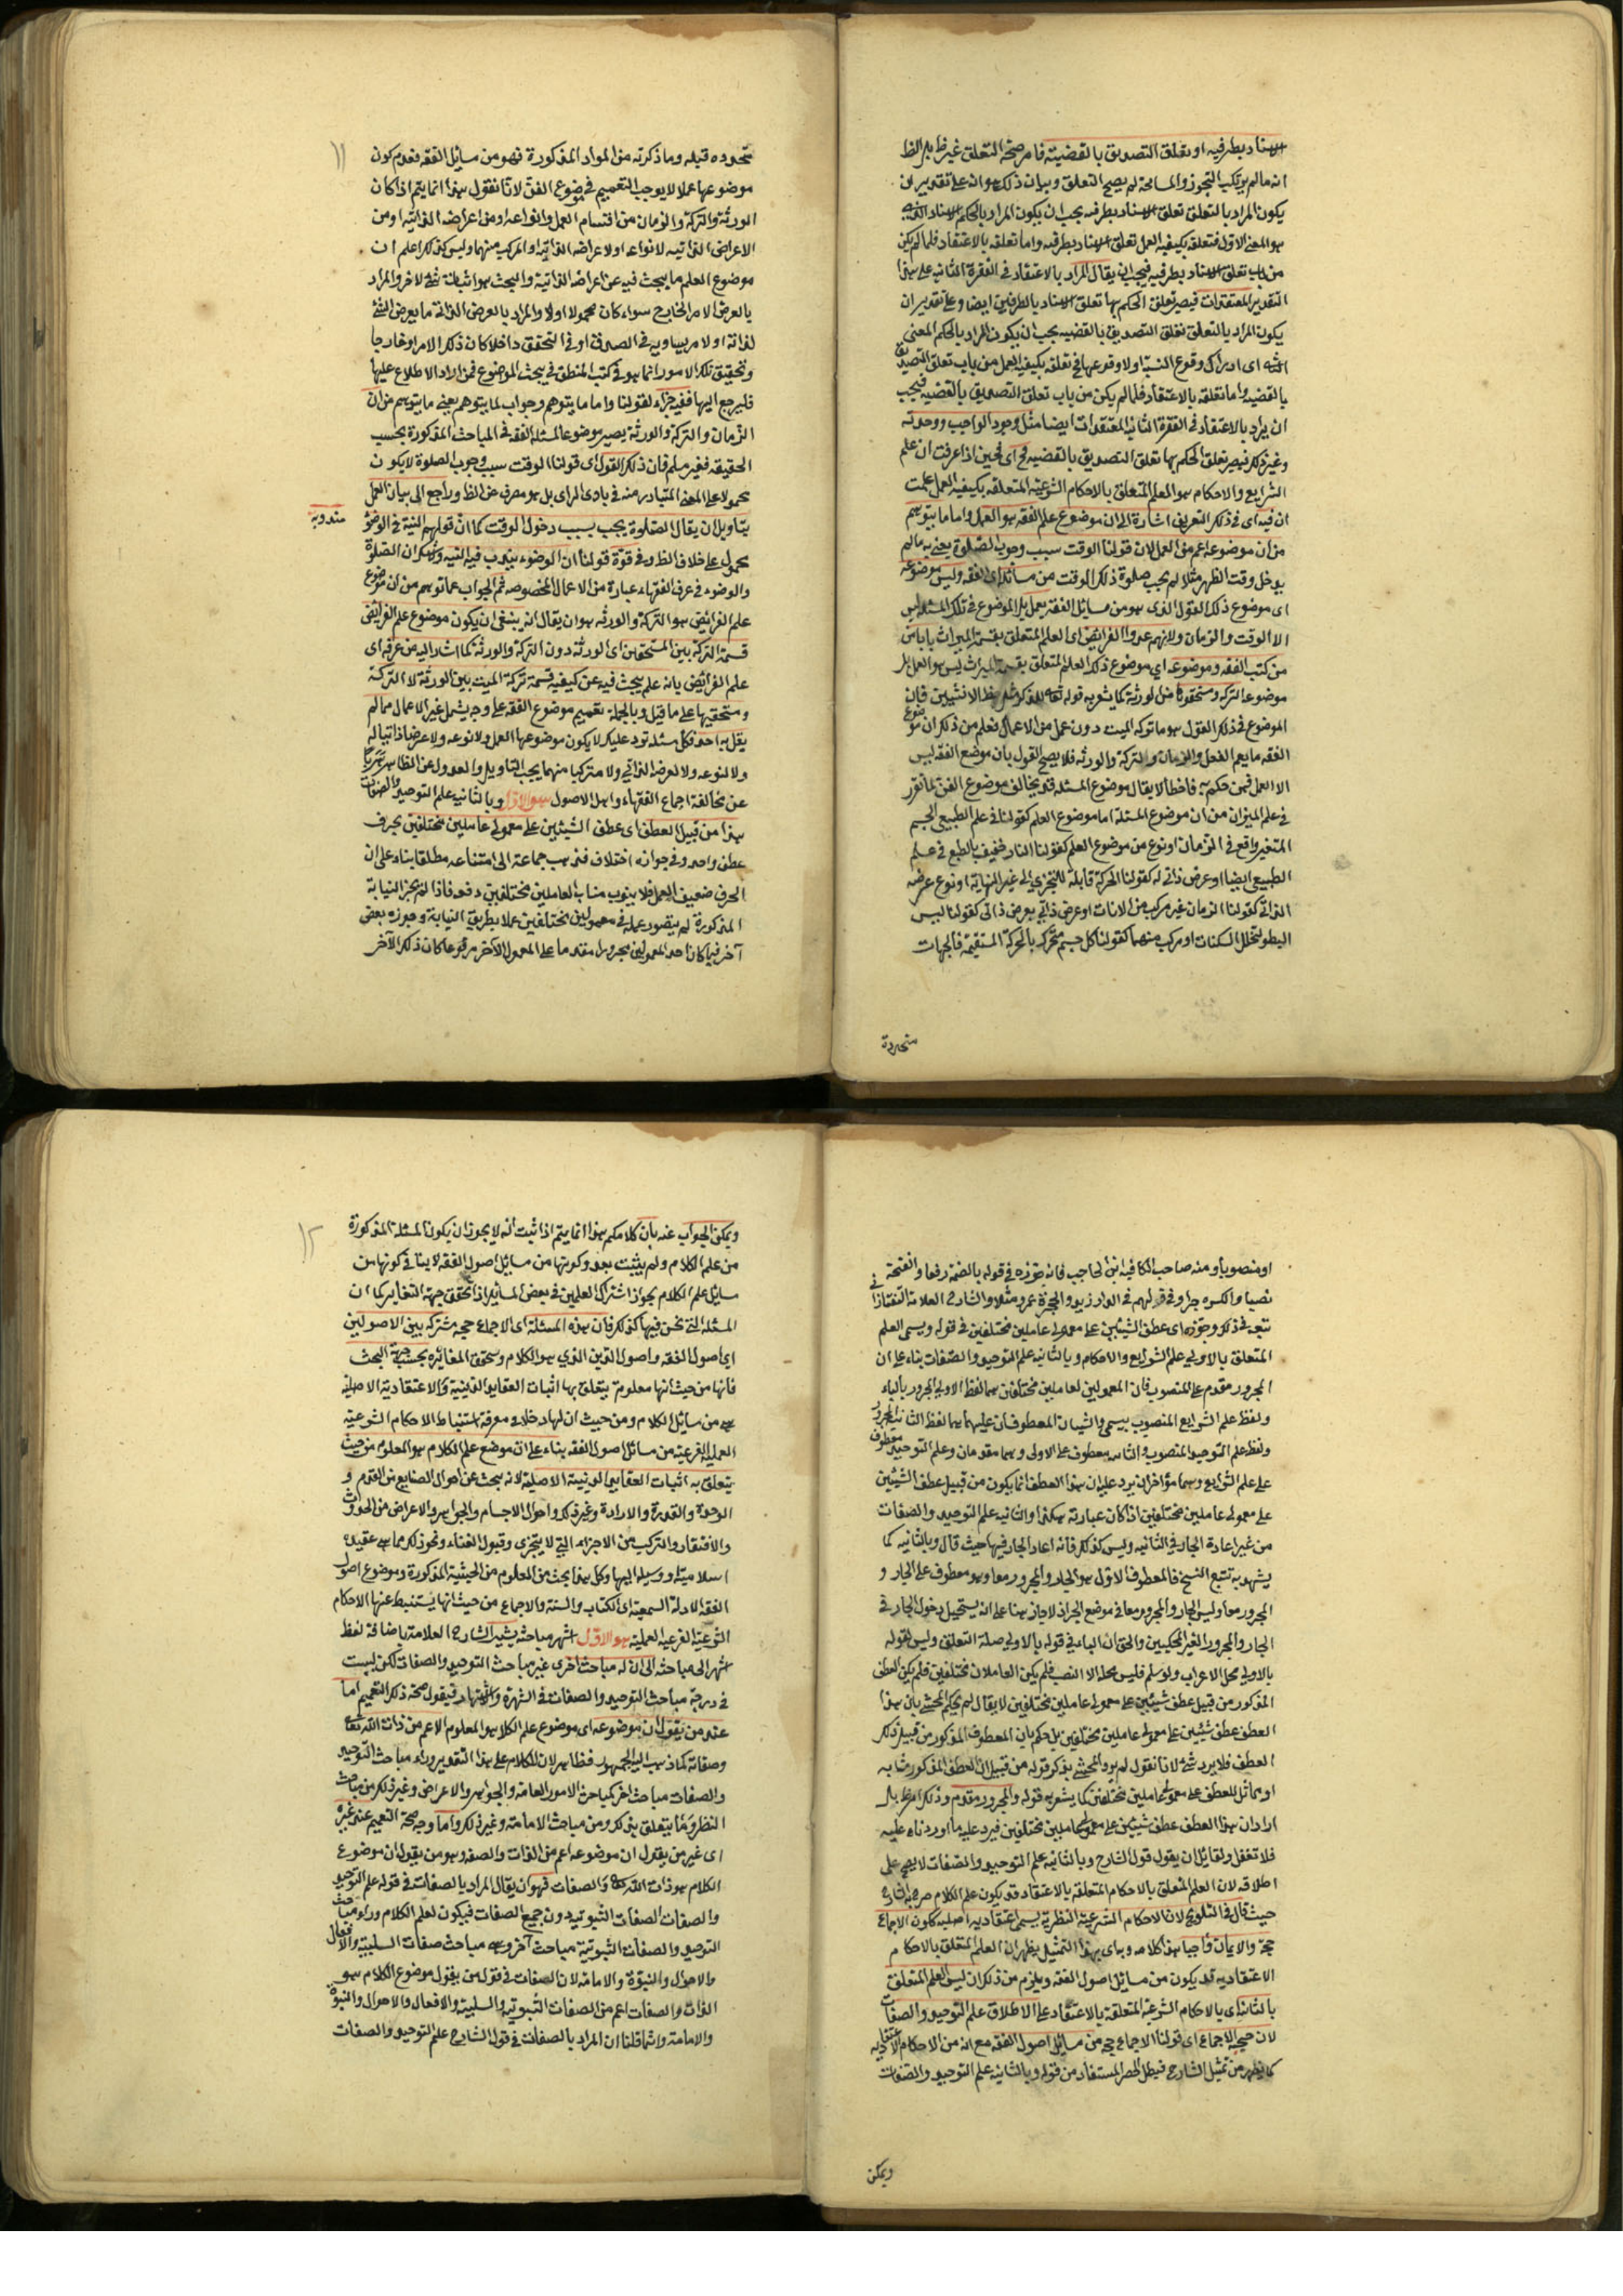 الاسناد بطرفيه او تعلق التصديق بالقضية فامر صحة التعلق غير ظ بل الظ
انه مالم يرتكب التجوز والمسامحة لم يصح التعلق وبيان ذلك هو انه على تقدير ان
يكون المراد بالتعلق تعلق الاسناد بطرفيه يجب ان يكون المراد بالحكم الاسناد الذي
هو المعنى الاول فتعلقه بكيفية العمل تعلق الاسناد بطرفيه واما تعلقه بالاعتقاد فلما لم يكن
من باب تعلق الاسناد بطرفيه فيجب ان يقال المراد بالاعتقاد في الفقرة الثانية على هذا
التقدير المعتقدات فيصير تعلق الحكم بها تعلق الاسناد بالطرفين ايضا وعلى تقدير ان
يكون المراد بالتعلق تعلق التصديق بالقضيه يجب ان يكون المراد بالحكم المعنى
الثاني اى ادراك وقوع النسبة اولا وقوعها فح تعلقه بكيفية العمل من باب تعلق التصديق
بالقضيه واما تعلقه بالاعتقاد فلما لم يكن من باب تعلق التصديق بالقضيه فيجب
ان يراد بالاعتقاد في الفقرة الثانية المعتقدات ايضا مثل وجود الواجب ووحدته
وغير ذلك فيصير تعلق الحكم بها تعلق التصديق بالقضيه فح اى فحين اذا عرفت ان علم
الشرايع والاحكام هو العلم المتعلق بالاحكام الشرعية المتعلقه بكيفية العمل علمت
ان فيه اى في ذلك التعريف اشارة الى ان موضوع علم الفقه هو العمل واما ما يتوهم
من ان موضوعه اعم من العمل لان قولنا الوقت سبب وجوب الصلوة يعنى به مالم
يدخل وقت الظهر مثلا لم يجب صلوة ذلك الوقت من مسائله اى الفقه وليس موضوعه
اى موضوع ذلك القول الذى هو من مسايل الفقه بعمل بل الموضوع في تلك المسئله ليس
الا الوقت والزمان ولانهم عدوا الفرايض اى العلم المتعلق بقسمة الميراث بابا من
من كتب الفقه وموضوعه اي موضوع ذلك العلم المتعلق بقسمة الميراث ليس هو العمل بل
موضوعه التركه ومستحقوها من الورثة كما يشعر به قوله تعالى للذكر مثل حظ الانثيين فان
الموضوع في ذلك القول هو ما تركه الميت دون عمل من الاعمال فعلم من ذلك ان موضوع
الفقه ما يعم الفعل والزمان والتركة والورثه فلا يصح القول بان موضع الفقه ليس
الا العمل فمن حكم به فاخطأ لا يقال موضوع المسئله قد يخالف موضوع الفن لما تقرر
في علم الميزان من ان موضوع المسئلة اما موضوع العلم كقولنا في علم الطبيعي الجسم
المتغير واقع في الزمان او نوع من موضوع العلم كقولنا النار خفيف بالطبع في علم
الطبيعي ايضا او عرض ذاتي له كقولنا الحركة قابلة للتجزي الى غير النهاية او نوع عرضه
الذاتي كقولنا الزمان غير مركب من الانات او عرض ذاتي بعرض ذاتى كقولنا ليس
البطوء لتخلل السكنات او مركب منهما كقولنا كل جسم متحرك بالحركة المستقيمة فالجهات
متحددة
متحدده قبله وما ذكرته من المواد المذكورة فهو من مسايل الفقه فعدم كون ١١
موضوعها عملا لا يوجب التعميم في موضوع الفن لانا نقول هذا انما يتم اذا كان
الورثة والتركة والزمان من اقسام العمل وانواعه او من اعراضه الذاتيه او من
الاعراض الذاتيه لانواعه او لاعراضه الذاتية او المركب منهما وليس كذلك اعلم ان
موضوع العلم ما يبحث فيه عن اعراضه الذاتية والبحث هو اثبات شئ لاخر والمراد
بالعرض الامر الخارج سواء كان محمولا اولا والمراد بالعرض الذاتي ما يعرض الشئ
لذاته اولا مر يساويه في الصدق او في التحقق داخلا كان ذلك الامر او خارجا
وتحقيق تلك الامور انما هو في كتب المنطق في بحث الموضوع فمن اراد الاطلاع عليها
فليرجع اليها ففيه جزاء لقولنا واما ما يتوهم وجواب لما يتوهم يعنى ما يتوهم من ان
الزمان والتركة والورثة يصير موضوعا لمسئلة الفقه في المباحث المذكورة بحسب
الحقيقه فغير مسلم فان ذلك القول اى قولنا الوقت سبب وجوب الصلوة لا يكون
محمولا على المعنى المتبادر منه في بادى الراى بل هو مصرف عن الظ وراجع الى بيان العمل
بتاويل ان يقال الصلوة يجب بسبب دخول الوقت كما ان قولهم النية في الوضوء مندوبة
محمول على خلاف الظ وفي قوة قولنا ان الوضوء يندب فيه النيه ولاشك ان الصلوة
والوضوء في عرف الفقهاء عبارة من الاعمال المخصوصه ثم الجواب عما توهم من ان موضوع
علم الفرائض هو التركة والورثه هو ان يقال انه ينبغى ان يكون موضوع علم الفرائض
قسمة التركة بين المستحقين اى الورثة دون التركة والورثة كما اشار اليه من عرفه اى
علم الفرائض بانه علم يبحث فيه عن كيفية قسمة تركة الميت بين الورثة لا التركة
ومستحقيها على ما قيل وبالجملة تعميم موضوع الفقه على وجه يشمل غير الاعمال مما لم
يقل به احد فكل مسئله ترد عليك لا يكون موضوعها العمل ولا نوعه ولا عرضا ذاتيا له
ولا لنوعه ولا لعرضه الذاتي ولا مركبا منهما يجب التاويل والعدول عن الظاهر تحرزا
عن مخالفة اجماع الفقهاء واهل الاصول هو الاول وبالثانيه علم التوحيد والصفات
هذا من قبيل العطف اى عطف الشيئين على معمولى عاملين مختلفين بحرف
عطف واحد وفي جوازه اختلاف فذهب جماعة الى امتناعه مطلقا بناء على ان
الحرف ضعيف العمل فلا ينوب مناب العاملين مختلفين دفعه فاذا لم يجز النيابة
المذكورة لم يتصور عمله في معمولين مختلفين عملا بطريق النيابة وجوزه بعض
آخر فيما كان احد المعمولين مجرورا مقدما على المعمول الآخر مرفوعا كان ذلك الآخر
او منصوبا ومنه صاحب الكافيه ابن الحاجب فانه جوزه في قوله بالضمة رفعا والفتحة
نصبا والكسره جرا وفي قولهم في الدار زيد والحجرة عمرو مثلا والشارح العلامة التفتازانى
تبعه في ذلك وجوزه اى عطف الشيئين على معمولى عاملين مختلفين في قوله ويسمى العلم
المتعلق بالاولى علم الشرايع والاحكام وبالثانيه علم التوحيد والصفات بناء على ان
المجرور مقدم على المنصوب فان المعمولين لعاملين مختلفين هما لفظ الاولى المجرور بالباء
ولفظ علم الشرايع المنصوب بيسمى والشيئان المعطوفان عليهما هما لفظ الثانية المجرور
ولفظ علم التوحيد المنصوب والثانيه معطوف على الاولى وهما مقدمان وعلم التوحيد معطوف
على علم الشرايع وهما مؤاخران يرد عليه ان هذا العطف انما يكون من قبيل عطف الشيئين
على معمولى عاملين مختلفين اذا كان عبارته هكذا والثانيه علم التوحيد والصفات
من غير اعادة الجار في الثانيه وليس كذلك فانه اعاد الجار فيها حيث قال وبالثانيه كما
يشهد به تتبع النسخ فالمعطوف الاول هو الجار والمجرور معا وهو معطوف على الجار و
المجرور معا وليس الجار والمجرور معا في موضع الجر اذ لا جاز هنا على انه يستحيل دخول الجار في
الجار والمجرور الغير المحكيين والحق ان الباء في قوله بالاولى صلة التعلق وليس لقوله
بالاولى محل الاعراب ولو سلم فليس محله الا النصب فلم يكن العاملان مختلفين فلم يكن العطف
المذكور من قبيل عطف شيئين على معمولى عاملين مختلفين لا يقال لم يحكم المحشى بان هذا
العطف عطف شيئين على معمولى عاملين مختلفين بل حكم بان المعطوف المذكور من قبيل ذلك
العطف فلا يرد شئ لانا نقول لم يرد المحشى بذكر قوله من قبيل ان العطف المذكور مشابه
او مماثل للعطف على معمولى عاملين مختلفين كما يشعر به قوله والمجرور مقدم وذلك ظ بل
اراد ان هذا العطف عطف شيئين على معمولى عاملين مختلفين فيرد عليه ما اوردناه عليه
فلا تغفل ولقايل ان يقول قول الشارح وبالثانيه علم التوحيد والصفات لا يصح على
اطلاقه لان العلم المتعلق بالاحكام المتعلقه بالاعتقاد قد يكون علم الكلام صرح به الشارح
حيث قال في التلويح لان الاحكام الشرعية النظرية يسمى اعتقاديه اصليه ككون الاجماع
حجة والايمان واجبا هذا كلامه وبهذا التمثيل يظهر ان العلم المتعلق بالاحكام
الاعتقاديه قد يكون من مسايل اصول الفقه ويلزم من ذلك ان ليس العلم المتعلق
بالثانيه اى بالاحكام الشرعية المتعلقة بالاعتقاد على الاطلاق علم التوحيد والصفات
لان حجية الاجماع اى قولنا الاجماع حجة من مسايل اصول الفقه مع انه من الاحكام الاعتقاديه
كما يظهر من تمثيل الشارح فيبطل الحصر المستفاد من قوله وبالثانيه علم التوحيد والصفات
ويمكن
ويمكن الجواب عنه بان كلامكم هذا انما يتم اذا ثبت انه لا يجوز ان يكون المسئلة المذكورة ١٢
من علم الكلام ولم يثبت بعد وكونها من مسايل اصول الفقه لا ينافي كونها من
مسايل علم الكلام بجواز اشتراك العلمين في بعض المسائل اذا تحقق جهة التغاير كما ان
المسئله التى نحن فيها كذلك فان هذه المسئلة اى الاجماع حجه مشتركه بين الاصولين
اى اصول الفقه واصول الدين الذي هو الكلام وتحقق المغايره بحسب جهة البحث
فانها من حيث انها معلومة يتعلق بها اثبات العقايد الدينية والاعتقادية الاصلية
هى من مسائل الكلام ومن حيث ان لها دخلا في معرفة استنباط الاحكام الشرعية
العملية الفرعية من مسائل اصول الفقه بناء على ان موضع علم الكلام هو المعلوم من حيث
يتعلق به اثبات العقايد الدينية الاصلية لانه يبحث عن احوال الصانع من القدم و
الوحدة والقدرة والارادة وغير ذلك واحوال الاجسام والجواهر والاعراض من الحدوث
والافتقار والتركب من الاجزاء التي لا يتجزى وقبول الفناء ونحو ذلك مما هى عقيدة
اسلامية او وسيلة اليها وكل هذا بحث من المعلوم من الحيثية المذكورة وموضوع اصول
الفقه الادلة السمعية اى الكتاب والسنة والاجماع من حيث انها يستنبط عنها الاحكام
الشرعية الفرعية العملية هو الاول اشهر مباحثه يشير الشارح العلامة باضافة لفظ
اشهر الى مباحثه الى ان له مباحث اخرى غير مباحث التوحيد والصفات لكن ليست
في درجة مباحث التوحيد والصفات في الشهرة والاشتهار فيقول صحة ذلك التعميم اما
عند من يقول ان موضوعه اى موضوع علم الكلام هو المعلوم الاعم من ذات الله تعالى
وصفاته كما ذهب اليه الجمهور فظاهر لان للكلام على هذا التقدير وراء مباحث التوحيد
والصفات مباحث اخر كمباحث الامور العامة والجواهر والاعراض وغير ذلك من مباحث
النظر وما يتعلق بذلك ومن مباحث الامامة وغير ذلك واما وجه صحة التعميم عند غيره
اى غير من يقول ان موضوعه اعم من الذات والصفه وهو من يقول ان موضوع
الكلام هو ذات الله تعالى والصفات فهو ان يقال المراد بالصفات في قوله علم التوحيد
والصفات الصفات الثبوتيه دون جميع الصفات فيكون لعلم الكلام وراء مباحث
التوحيد والصفات الثبوتية مباحث آخر وهى مباحث صفات السلبية والافعال
والاحوال والنبوة والامامة لان الصفات في قول من يقول موضوع الكلام هو
الذات والصفات اعم من الصفات الثبوتيه والسلبية والافعال والاحوال والنبوة
والامامة وانما قلنا ان المراد بالصفات في قول الشارح علم التوحيد والصفات